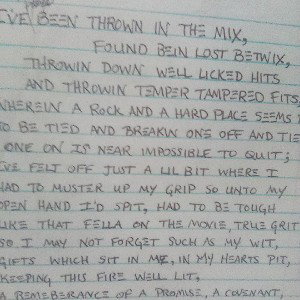 I'VE BEEN THROWN IN THE MIX,
FOUND BEIN LOST BETWIX,
THROWIN DOWN WELL LICKED HITS
AND THROWIN TEMPER TAMPERED FITS
WHEREIN A ROCK AND A HARD PLACE SEEMS
TO BE TIED AND BREAKIN ONE OFF AND TIE
ONE ON IS NEAR IMPOSSIBLE TO QUIT;
I'VE FELT OFF JUST A LIL BIT WHERE I
HAD TO MUSTER UP MY GRIP SO UNTO MY
OPEN HAND I'D SPIT, HAD TO BE TOUGH
LIKE THAT FELLA ON THE MOVIE, TRUE GRIT
SO I MAY NOT FORGET SUCH AS MY WIT,
GIFTS WHICH SIT IN ME, IN MY HEARTS PIT,
KEEPING THIS FIRE WELL LIT,
A REMEBERANCE OF A PROMISE, A COVENANT,